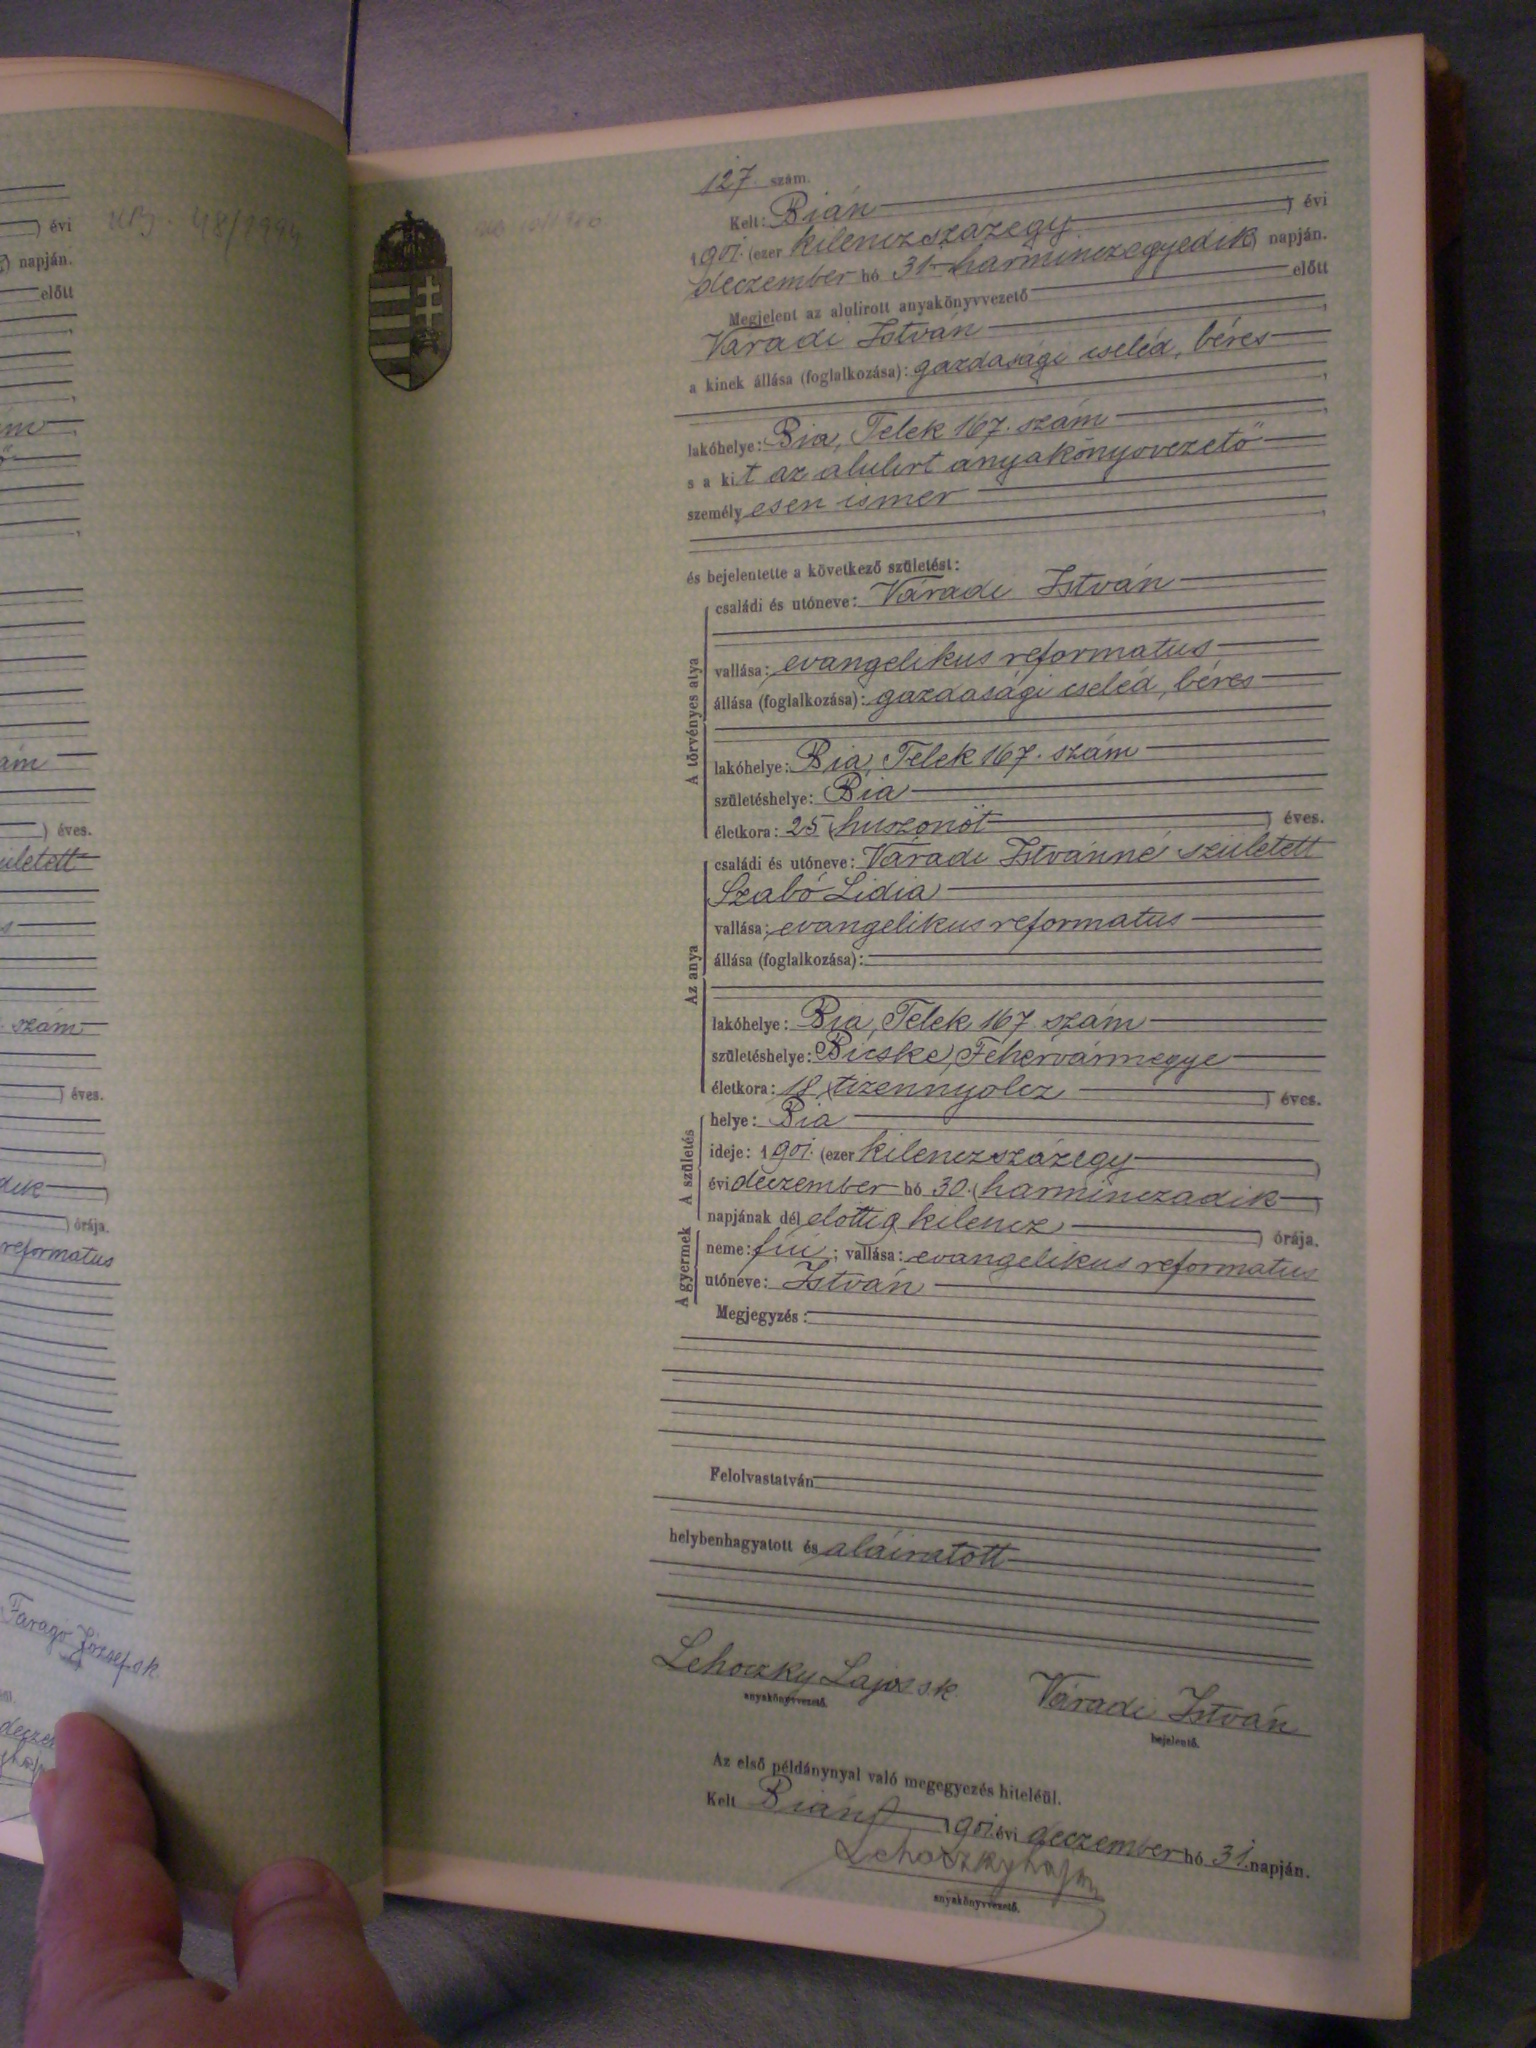 évi
napján.
előtt
éves.
született
szám
éves.
órája.
reformatus
Faragó József sk
48/1994
127. szám.
Kelt: Bián évi
1901. (ezer kilenczszázegy
deczember hó 31. harminczegyedik) napján.
Megjelent az alulirott anyakönyvvezető előtt
Váradi István
a kinek állása (foglalkozása): gazdasági cseléd, béres
lakóhelye: Bia, Telek 167. szám
s a kit az alulirt anyakönyvvezető
személyesen ismer
és bejelentette a következő születést:
A törvényes atya
családi és utóneve: Váradi István
vallása: evangelikus reformatus
állása (foglalkozása): gazdasági cseléd, béres
lakóhelye: Bia, Telek 167. szám
születéshelye: Bia
életkora: 25 (huszonöt) éves.
Az anya
családi és utóneve: Váradi Istvánné született
Szabó Lidia
vallása: evangelikus reformatus
állása (foglalkozása):
lakóhelye: Bia, Telek 167 szám
születéshelye: Bicske, Fehérvármegye
életkora: 18 (tizennyolcz) éves.
A születés
helye: Bia
ideje: 1901. (ezer kilenczszázegy)
évi deczember hó 30. (harminczadik)
napjának dél előtti 9 kilencz) órája.
A gyermek
neme: fiú; vallása: evangelikus reformatus
utóneve: István
Megjegyzés:
Felolvastatván
helybenhagyatott és aláiratott
Lehoczky Lajos s.k. Váradi István
anyakönyvvezető. bejelentő.
Az első példánynyal való megegyezés hiteléül.
Kelt Bián, 1901. évi deczember hó 31. napján.
Lehoczky Lajos
anyakönyvvezető.